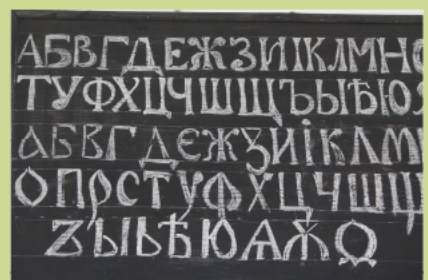 АБВГДЕЖЗИІКЛМНО
ТУФХЦЧШЩЪЫѢЮ
АБВГДЕЖЗИІКЛМ
ОПРСТУФХЦЧШЩ
ЪЫЬѢЮѦѪ